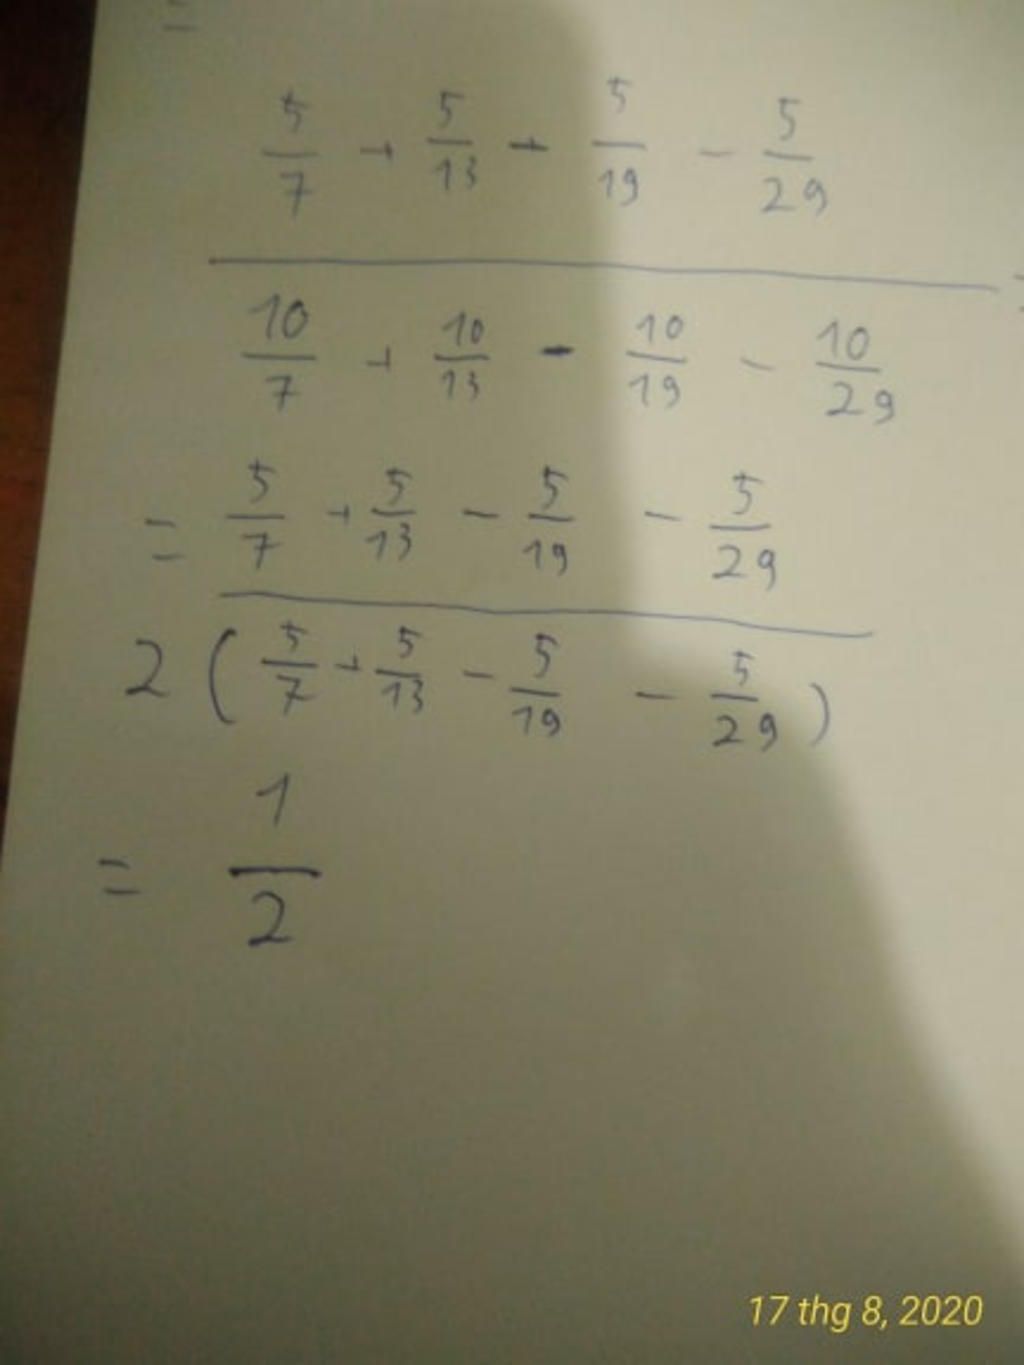 =
5/7 + 5/13 + 5/19 - 5/29
10/7 + 10/13 - 10/19 - 10/29
= 5/7 + 5/13 - 5/19 - 5/29
2 ( 5/7 + 5/13 - 5/19 - 5/29 )
= 1/2
17 thg 8, 2020